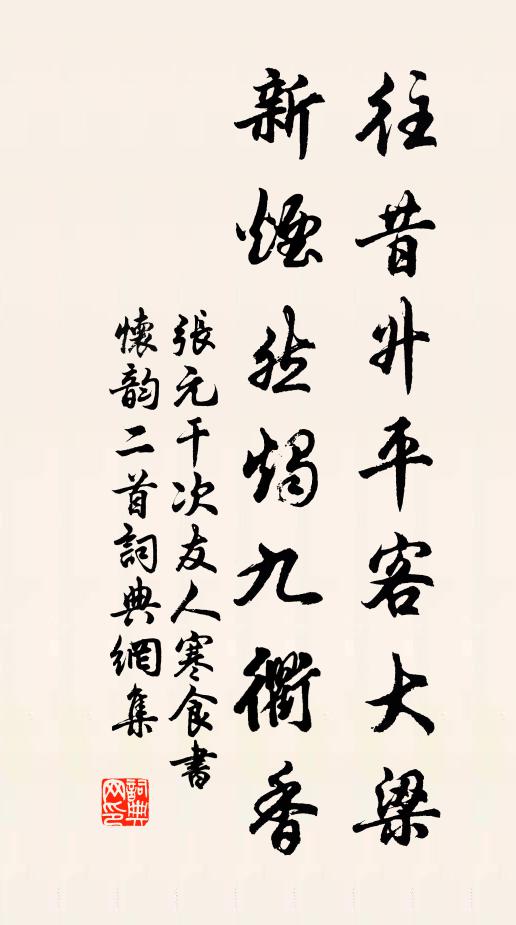 往昔升平客大梁
新煙然燭九衢香
張元干次友人寒食書
懷韵二首詞典網集
詞典
网印